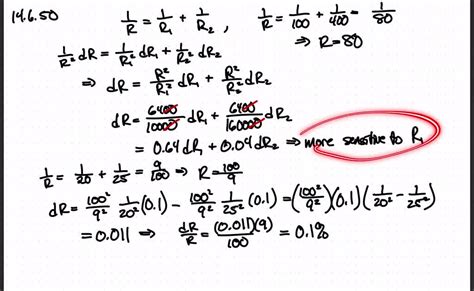 14.6.50 1/R = 1/R₁ + 1/R₂ , 1/R = 1/100 + 1/400 = 1/80
⇒ R = 80
1/R² dR = 1/R₁² dR₁ + 1/R₂² dR₂
⇒ dR = R²/R₁² dR₁ + R²/R₂² dR₂
dR = 6400/10000 dR₁ + 6400/160000 dR₂
= 0.64 dR₁ + 0.04 dR₂ ⇒ more sensitive to R₁
1/R = 1/20 + 1/25 = 9/100 ⇒ R = 100/9
dR = 100²/9² 1/20² (0.1) − 100²/9² 1/25² (0.1) = (100²/9²)(0.1)(1/20² − 1/25²)
= 0.011 ⇒ dR/R = (0.011)(9)/100 = 0.1%